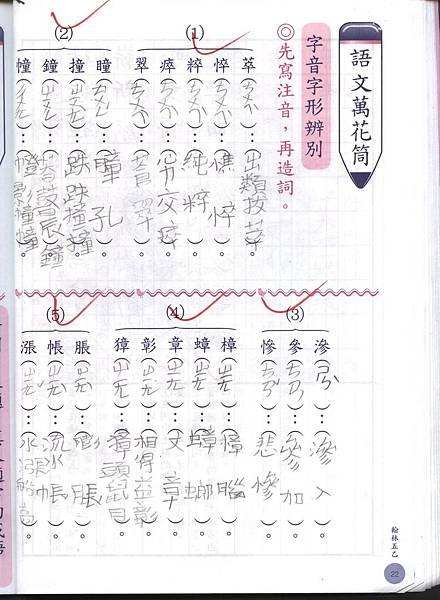 語文萬花筒
字音字形辨別
◎先寫注音，再造詞。
(1)
萃(ㄘㄨㄟˋ)：(出類拔萃)。
悴(ㄘㄨㄟˋ)：(憔悴)。
粹(ㄘㄨㄟˋ)：(純粹)。
瘁(ㄘㄨㄟˋ)：(交瘁)。
翠(ㄘㄨㄟˋ)：(翠)。
(2)
瞳(ㄊㄨㄥˊ)：(瞳孔)。
撞(ㄓㄨㄤˋ)：(跌跌撞撞)。
鐘(ㄓㄨㄥ)：(鼓晨鐘)。
幢(ㄔㄨㄤˊ)：(影幢幢)。
(3)
滲(ㄕㄣˋ)：(滲入)。
參(ㄘㄢ)：(參加)。
慘(ㄘㄢˇ)：(悲慘)。
(4)
樟(ㄓㄤ)：(樟腦)。
蟑(ㄓㄤ)：(蟑螂)。
章(ㄓㄤ)：(文章)。
彰(ㄓㄤ)：(相得益彰)。
獐(ㄓㄤ)：(獐頭鼠目)。
(5)
脹(ㄓㄤˋ)：(膨脹)。
帳(ㄓㄤˋ)：(流水帳)。
漲(ㄓㄤˇ)：(水漲船高)。
翰林五乙
22